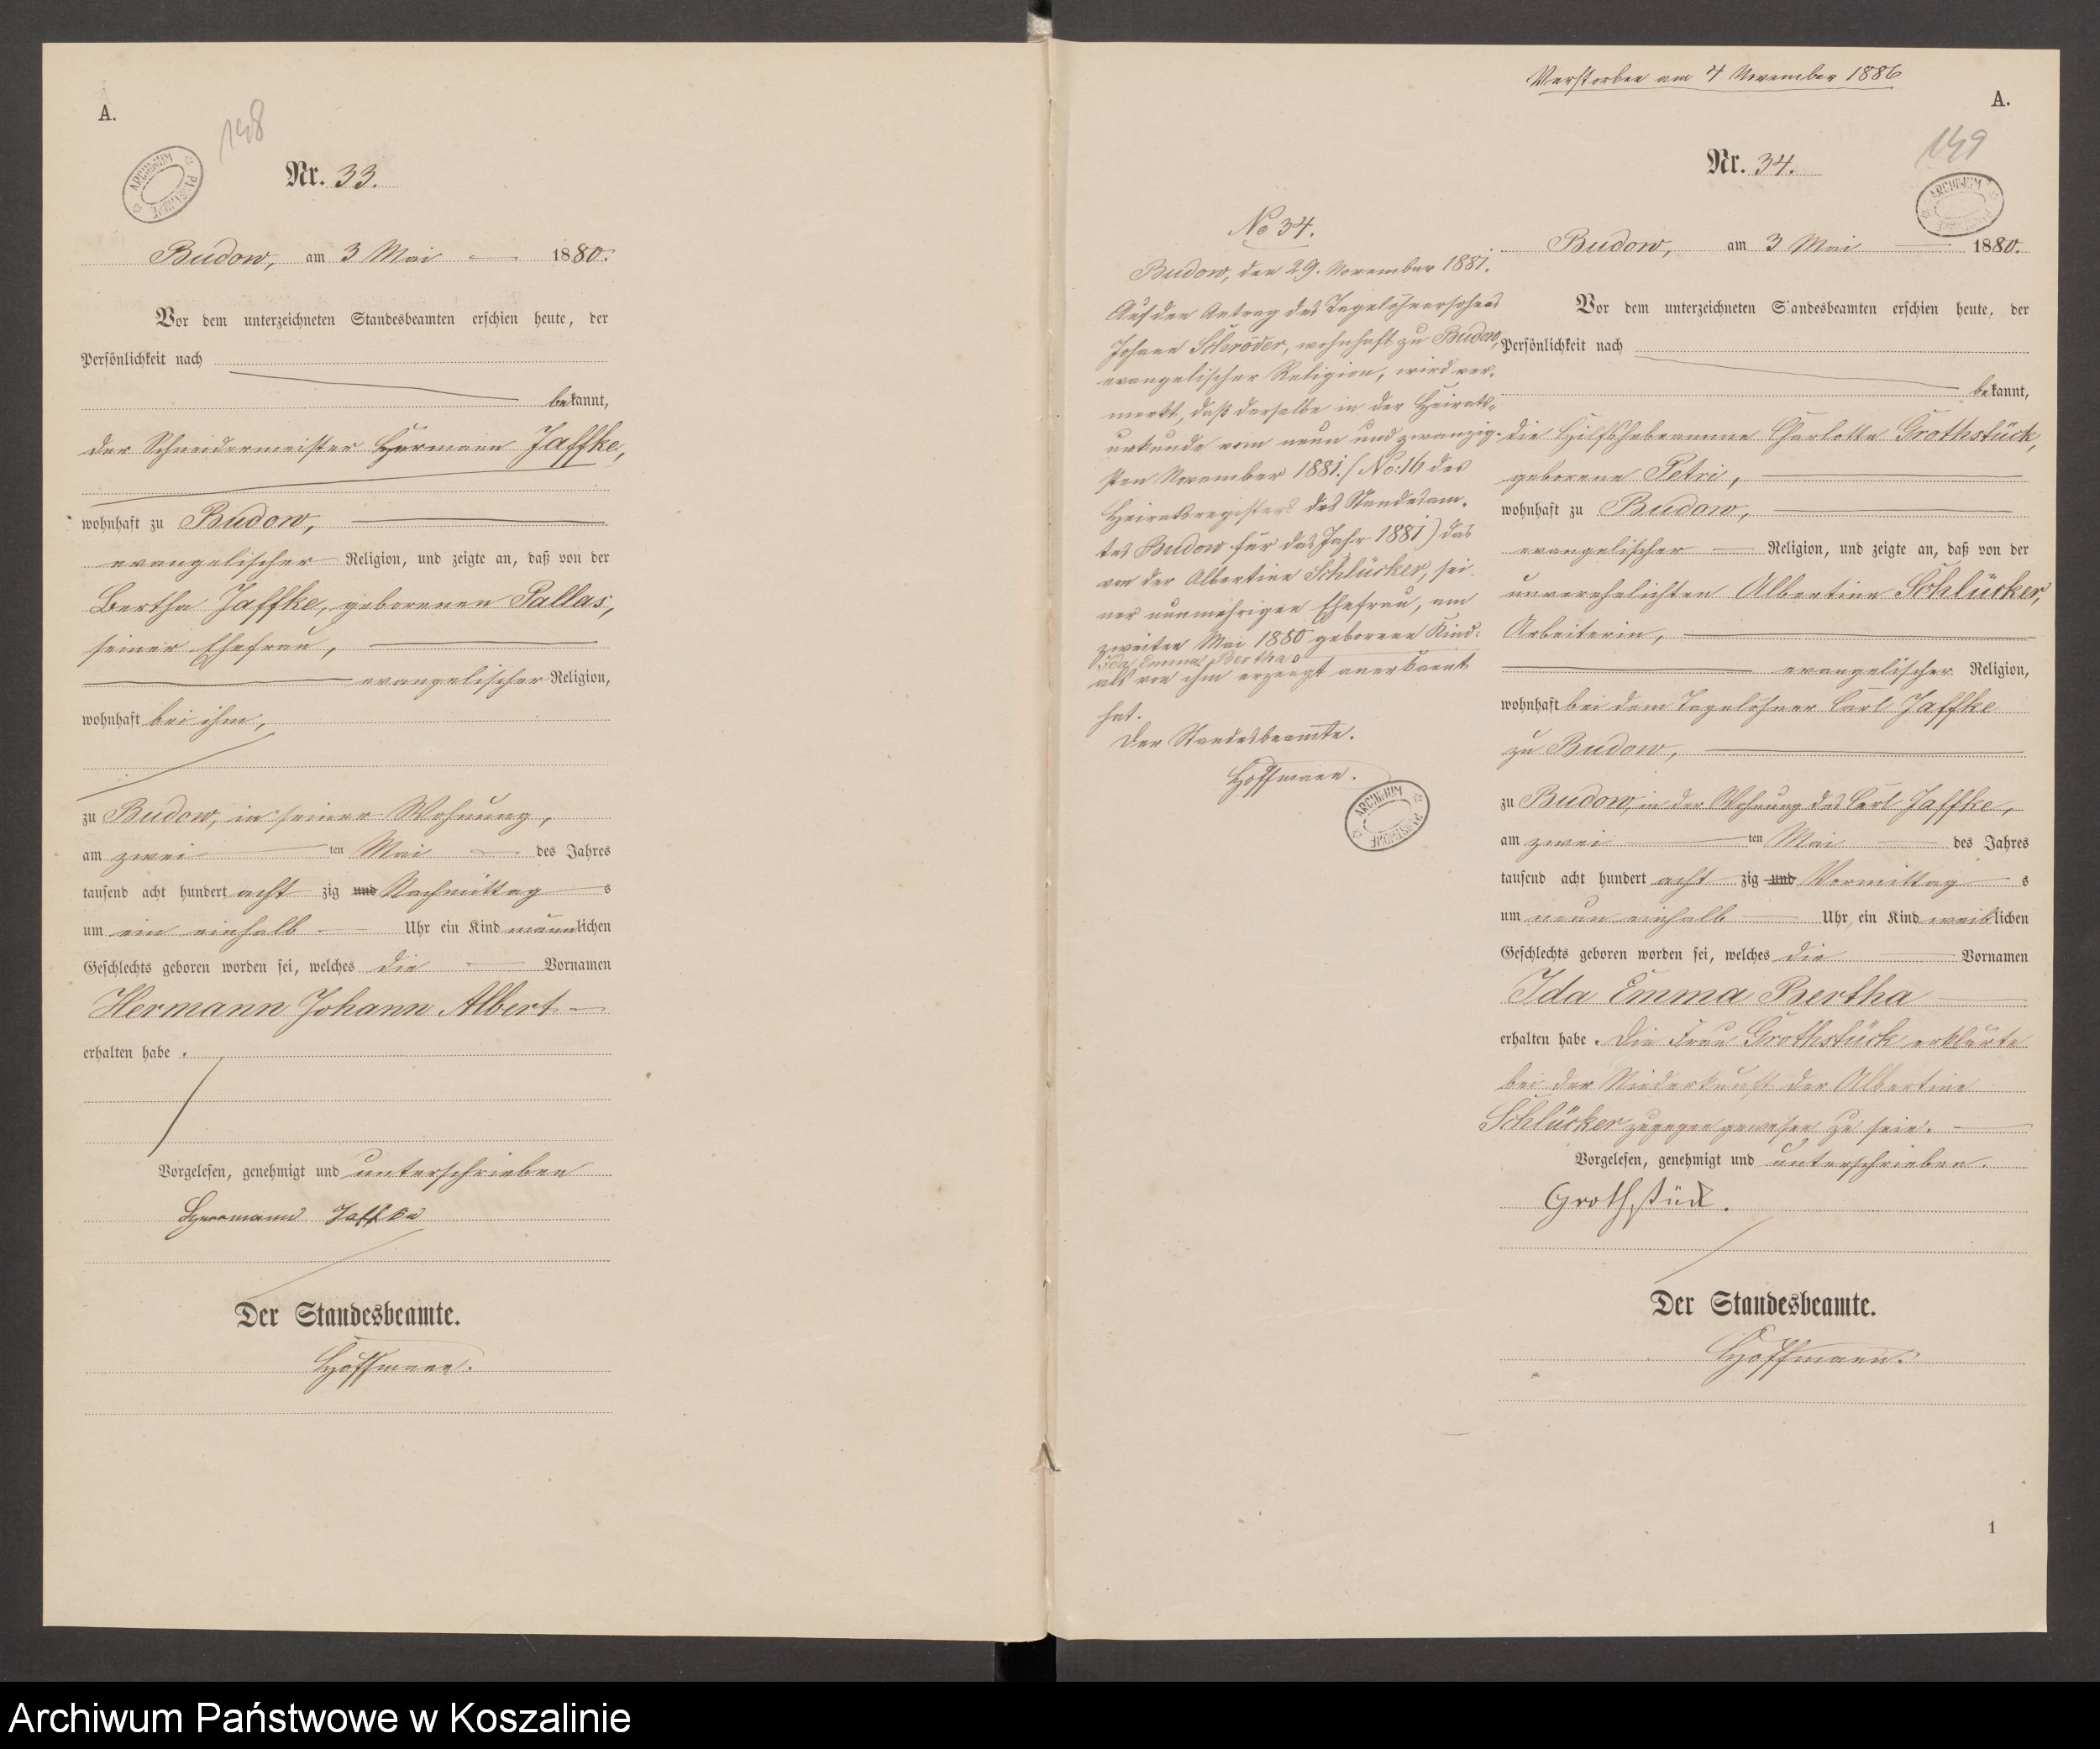 A.
148
ARCHIWUM PAŃSTWOWE
Nr. 33.
Budow, am 3 Mai 1880.
Vor dem unterzeichneten Standesbeamten erschien heute, der
Persönlichkeit nach
bekannt,
der Schneidermeister Hermann Jaffke,
wohnhaft zu Budow,
evangelischer Religion, und zeigte an, daß von der
Bertha Jaffke, geborenen Pallas,
seiner Ehefrau,
evangelischer Religion,
wohnhaft bei ihm,
zu Budow, in seiner Wohnung,
am zwei ten Mai des Jahres
tausend acht hundert acht zig und Nachmittag s
um ein einhalb Uhr ein Kind männlichen
Geschlechts geboren worden sei, welches die Vornamen
Hermann Johann Albert
erhalten habe.
Vorgelesen, genehmigt und unterschrieben
Herrmann Jaffke
Der Standesbeamte.
Hoffmann.
Verstorben am 4 November 1886
A.
149
Nr. 34.
ARCHIWUM PAŃSTWOWE
No 34.
Budow, den 29. November 1881.
Auf den Antrag des Tagelöhnersohnes
Johann Schröder, wohnhaft zu Budow,
evangelischer Religion, wird ver-
merkt, daß derselbe in der Heirats-
urkunde vom neun und zwanzig-
sten November 1881. (No: 16 des
Heiratsregisters des Standesam-
tes Budow für das Jahr 1881) das
von der Albertine Schlücker, sei-
ner nunmehrigen Ehefrau, am
zweiten Mai 1880 geborene Kind:
Ida Emma Bertha
als von ihm erzeugt anerkannt
hat.
Der Standesbeamte.
Hoffmann.
ARCHIWUM PAŃSTWOWE
Budow, am 3 Mai 1880.
Vor dem unterzeichneten Standesbeamten erschien heute, der
Persönlichkeit nach
bekannt,
die Hilfshebeamme Charlotte Grothstück,
geborene Petri,
wohnhaft zu Budow,
evangelischer Religion, und zeigte an, daß von der
unverehelichten Albertine Schlücker,
Arbeiterin,
evangelischer Religion,
wohnhaft bei dem Tagelöhner Carl Jaffke
zu Budow,
zu Budow, in der Wohnung des Carl Jaffke,
am zwei ten Mai des Jahres
tausend acht hundert acht zig und Vormittag s
um neun einhalb Uhr, ein Kind weiblichen
Geschlechts geboren worden sei, welches die Vornamen
Ida Emma Bertha
erhalten habe. Die Frau Grothstück erklärte
bei der Niederkunft der Albertine
Schlücker zugegen gewesen zu sein.
Vorgelesen, genehmigt und unterschrieben.
Grothstück.
Der Standesbeamte.
Hoffmann.
1
Archiwum Państwowe w Koszalinie